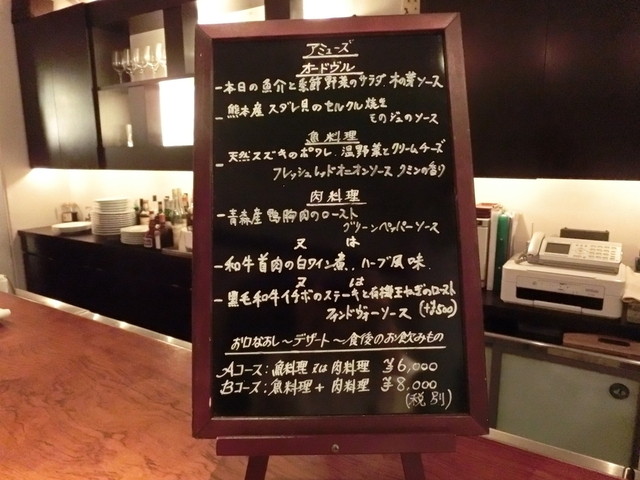 アミューズ
オードヴル
-本日の魚介と季節野菜のサラダ 木の芽ソース
-熊本産スダレ貝のセルクル焼き
そのジュのソース
魚料理
-天然スズキのポワレ、温野菜とクリームチーズ
フレッシュレッドオニオンソース クミンの香り
肉料理
-青森産鴨胸肉のロースト
グリーンペッパーソース
又は
-和牛首肉の白ワイン煮、ハーブ風味
又は
-黒毛和牛イチボのステーキと有機玉ねぎのロースト
フォンドヴォーソース (+¥500)
お口なおし〜デザート〜食後のお飲みもの
Aコース:魚料理 又は 肉料理 ¥6,000
Bコース:魚料理 + 肉料理 ¥8,000
(税別)